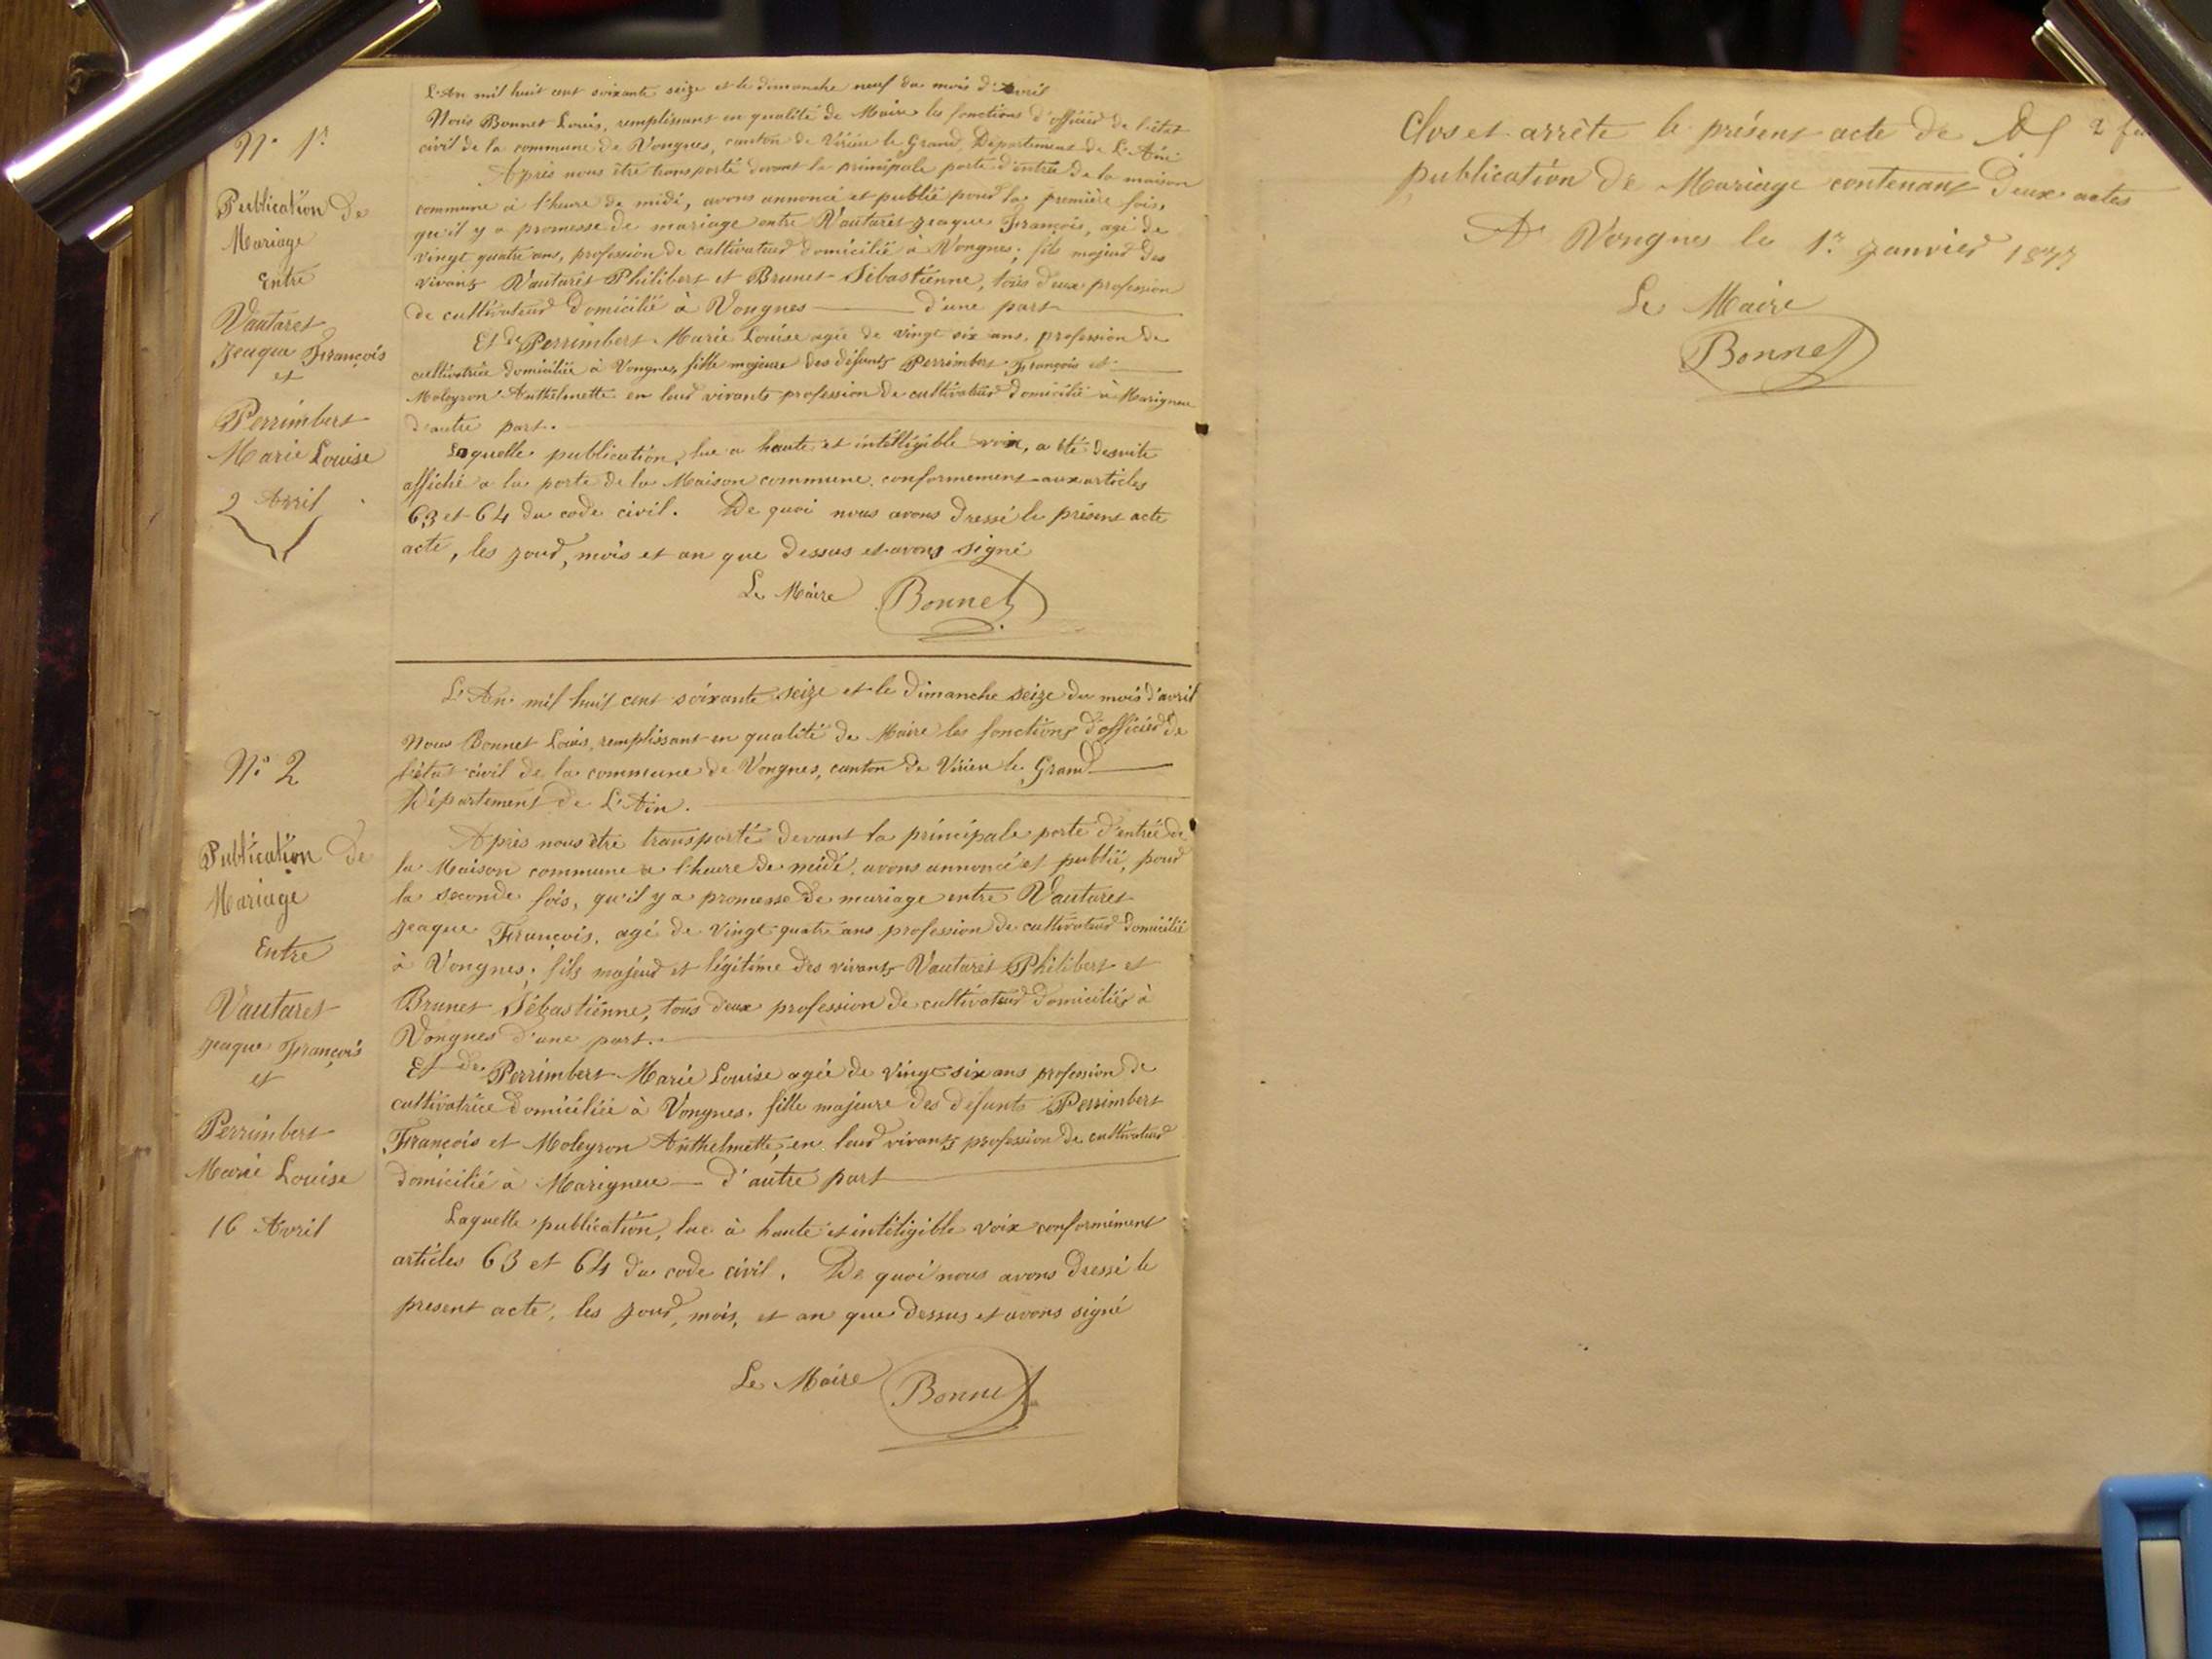 N° 1er
Publication de
Mariage
Entre
Vautaret
Jeaque François
et
Perrimbert
Marie Louise
9 Avril
L'An mil huit cent soixante seize et le dimanche neuf du mois d'Avril
Nous Bonnet Louis, remplissant en qualité de Maire les fonctions d'officier de l'état
civil de la commune de Vongnes, canton de Virieu le Grand, Département de L'Ain
Après nous être transporté devant la principale porte d'entrée de la maison
commune à l'heure de midi, avons annoncé et publié pour la première fois,
qu'il y a promesse de mariage entre Vautaret Jeaque François, agé de
vingt quatre ans, profession de cultivateur domicilié à Vongnes, fils majeur des
vivants Vautaret Philibert et Brunet Sébastienne, tous deux profession
de cultivateur domicilié à Vongnes d'une part
Et de Perrimbert Marie Louise agée de vingt six ans, profession de
cultivatrice domiciliée à Vongnes, fille majeure des défunts Perrimbert François et
Moleyron Anthelmette en leur vivants profession de cultivateur domicilié à Marignieu
d'autre part.
Laquelle publication, lue a haute et intélligible voix, a été desuite
affiché a la porte de la Maison commune conformement aux articles
63 et 64 du code civil. De quoi nous avons dressé le présent acte
acte, les jour, mois et an que dessus et avons signé
Le Maire Bonnet
N° 2
Publication de
Mariage
Entre
Vautaret
Jeaque François
et
Perrimbert
Marie Louise
16 Avril
L'An mil huit cent soixante seize et le Dimanche seize du mois d'avril
Nous Bonnet Louis, remplissant en qualité de Maire les fonctions d'officier de
l'état civil de la commune de Vongnes, canton de Virieu le Grand
Département de L'Ain.
Après nous être transporté devant la principale porte d'entrée de
la Maison commune a l'heure de midi, avons annoncé et publié, pour
la seconde fois, qu'il y a promesse de mariage entre Vautaret
Jeaque François, agé de vingt quatre ans profession de cultivateur domicilié
à Vongnes, fils majeur et légitime des vivants Vautaret Philibert et
Brunet Sébastienne, tous deux profession de cultivateur domiciliés à
Vongnes d'une part.
Et de Perrimbert Marie Louise agée de vingt six ans profession de
cultivatrice domiciliée à Vongnes, fille majeure des défunts Perrimbert
François et Moleyron Anthelmette, en leur vivants profession de cultivateur
domicilié à Marignieu d'autre part
Laquelle publication, lue à haute et intéligible voix conformément
articles 63 et 64 du code civil. De quoi nous avons dressé le
present acte, les jour, mois, et an que dessus et avons signé
Le Maire Bonnet
Clos et arrêté le présent acte de 2
publication de Mariage contenant deux actes
A Vongnes le 1er Janvier 1877
Le Maire
Bonnet